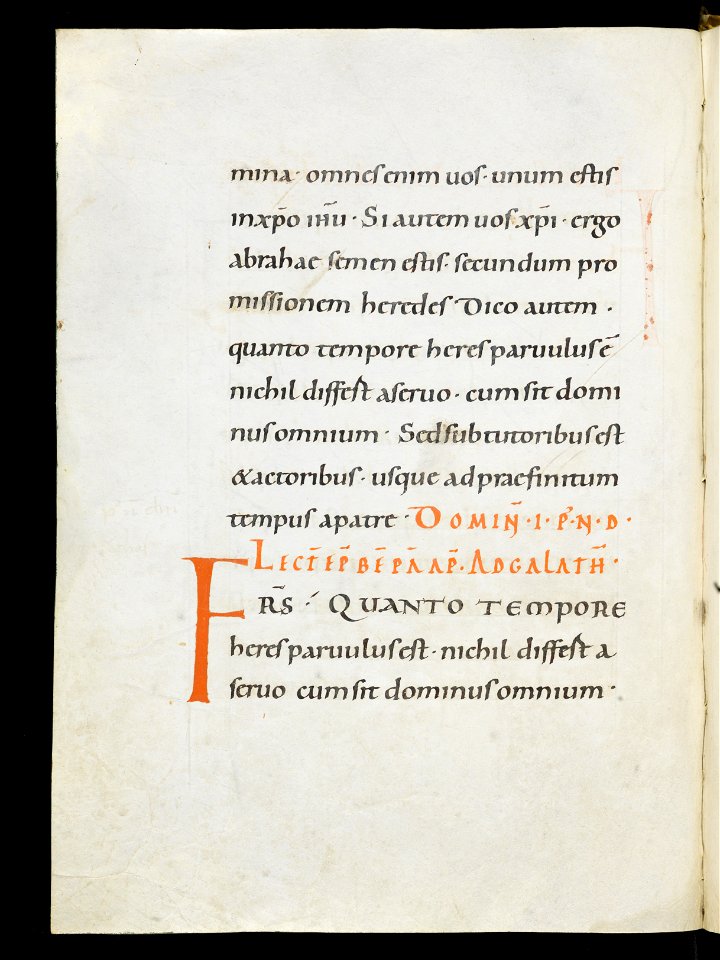 mina· omnes enim uos· unum estis
in xp̄o ih̄u · Si autem uos xp̄i · ergo
abrahae semen estis· secundum pro
missionem heredes Dico autem ·
quanto tempore heres paruulus ē
nichil differt a seruo · cum sit domi
nus omnium · Sed sub tutoribus est
& actoribus · usque ad praefinitum
tempus a patre · DOMIN̄ · I · P̄ · N · D ·
LECT̄ EP̄ BĒ PĀ AP̄ · AD GALATH̄ ·
FRS̄ · QUANTO TEMPORE
heres paruulus est · nichil differt a
seruo cum sit dominus omnium ·